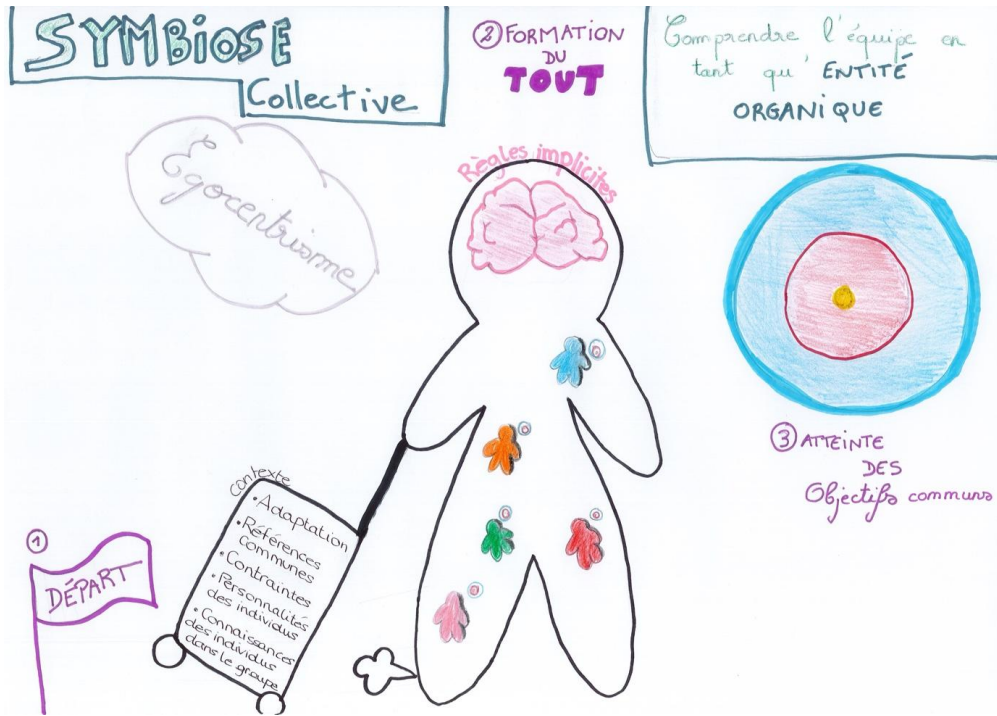 SYMBiOSE
Collective
② FORMATION
DU
TOUT
Comprendre l'équipe en
tant qu'ENTITÉ
ORGANIQUE
Egocentrisme
Règles implicites
③ ATTEINTE
DES
Objectifs communs
contexte
• Adaptation
• Références
Communes
• Contraintes
• Personnalités
des individus
• Connaissances
des individus
dans le groupe
①
DÉPART